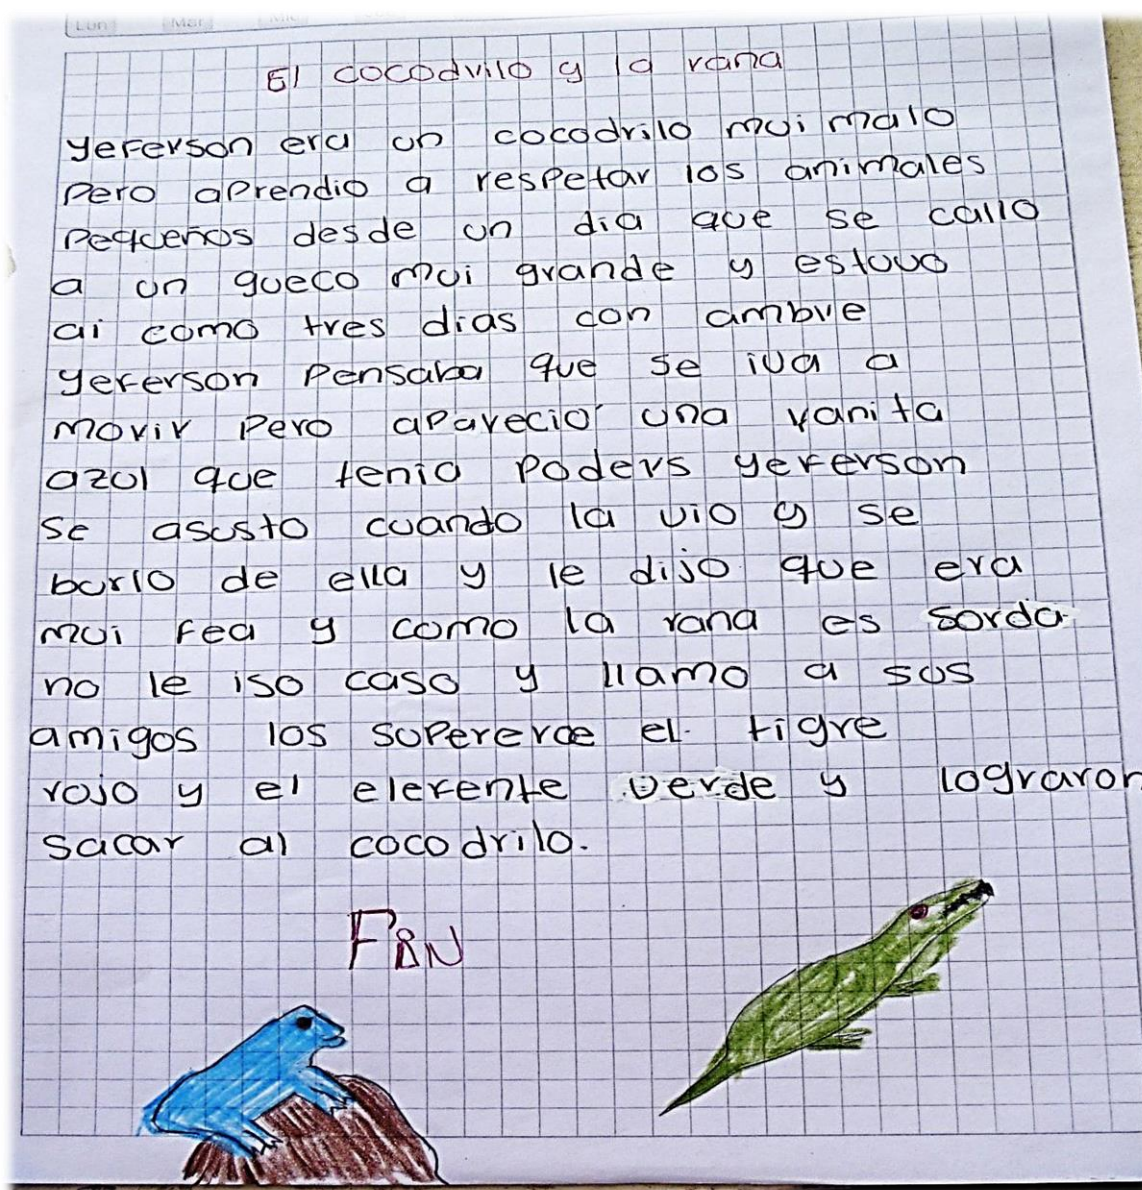 Lun Mar Mié
El cocodrilo y la rana
yeferson era un cocodrilo mui malo
pero aprendio a respetar los animales
pequeños desde un dia que se callo
a un gueco mui grande y estuvo
ai como tres dias con ambre
yeferson pensaba que se iva a
morir pero aparecio una ranita
azul que tenia poders yeferson
se asusto cuando la vio y se
burlo de ella y le dijo que era
mui fea y como la rana es sorda
no le iso caso y llamo a sus
amigos los supereroe el tigre
rojo y el elefente verde y lograron
sacar al cocodrilo.
FiN